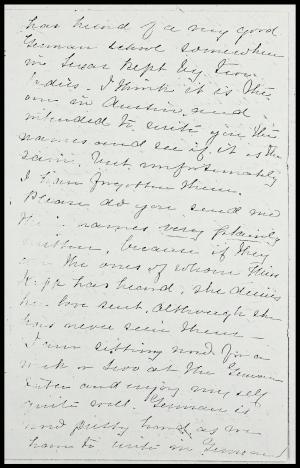 has heard of a very good
German school somewhere
in Texas kept by two
ladies. I think it is the
one in Austin, and
intended to write you the
names and see if it is the
same, but unfortunately
I have forgotten them.
Please do you send me
the names very plainly
written, because if they
are the ones of whom Miss
has heard, she desires
her love sent, although she
has never seen them —
I am sitting now for a
week or two at the German
table and enjoy myself
quite well. German is
now pretty hard as we
have to write in German